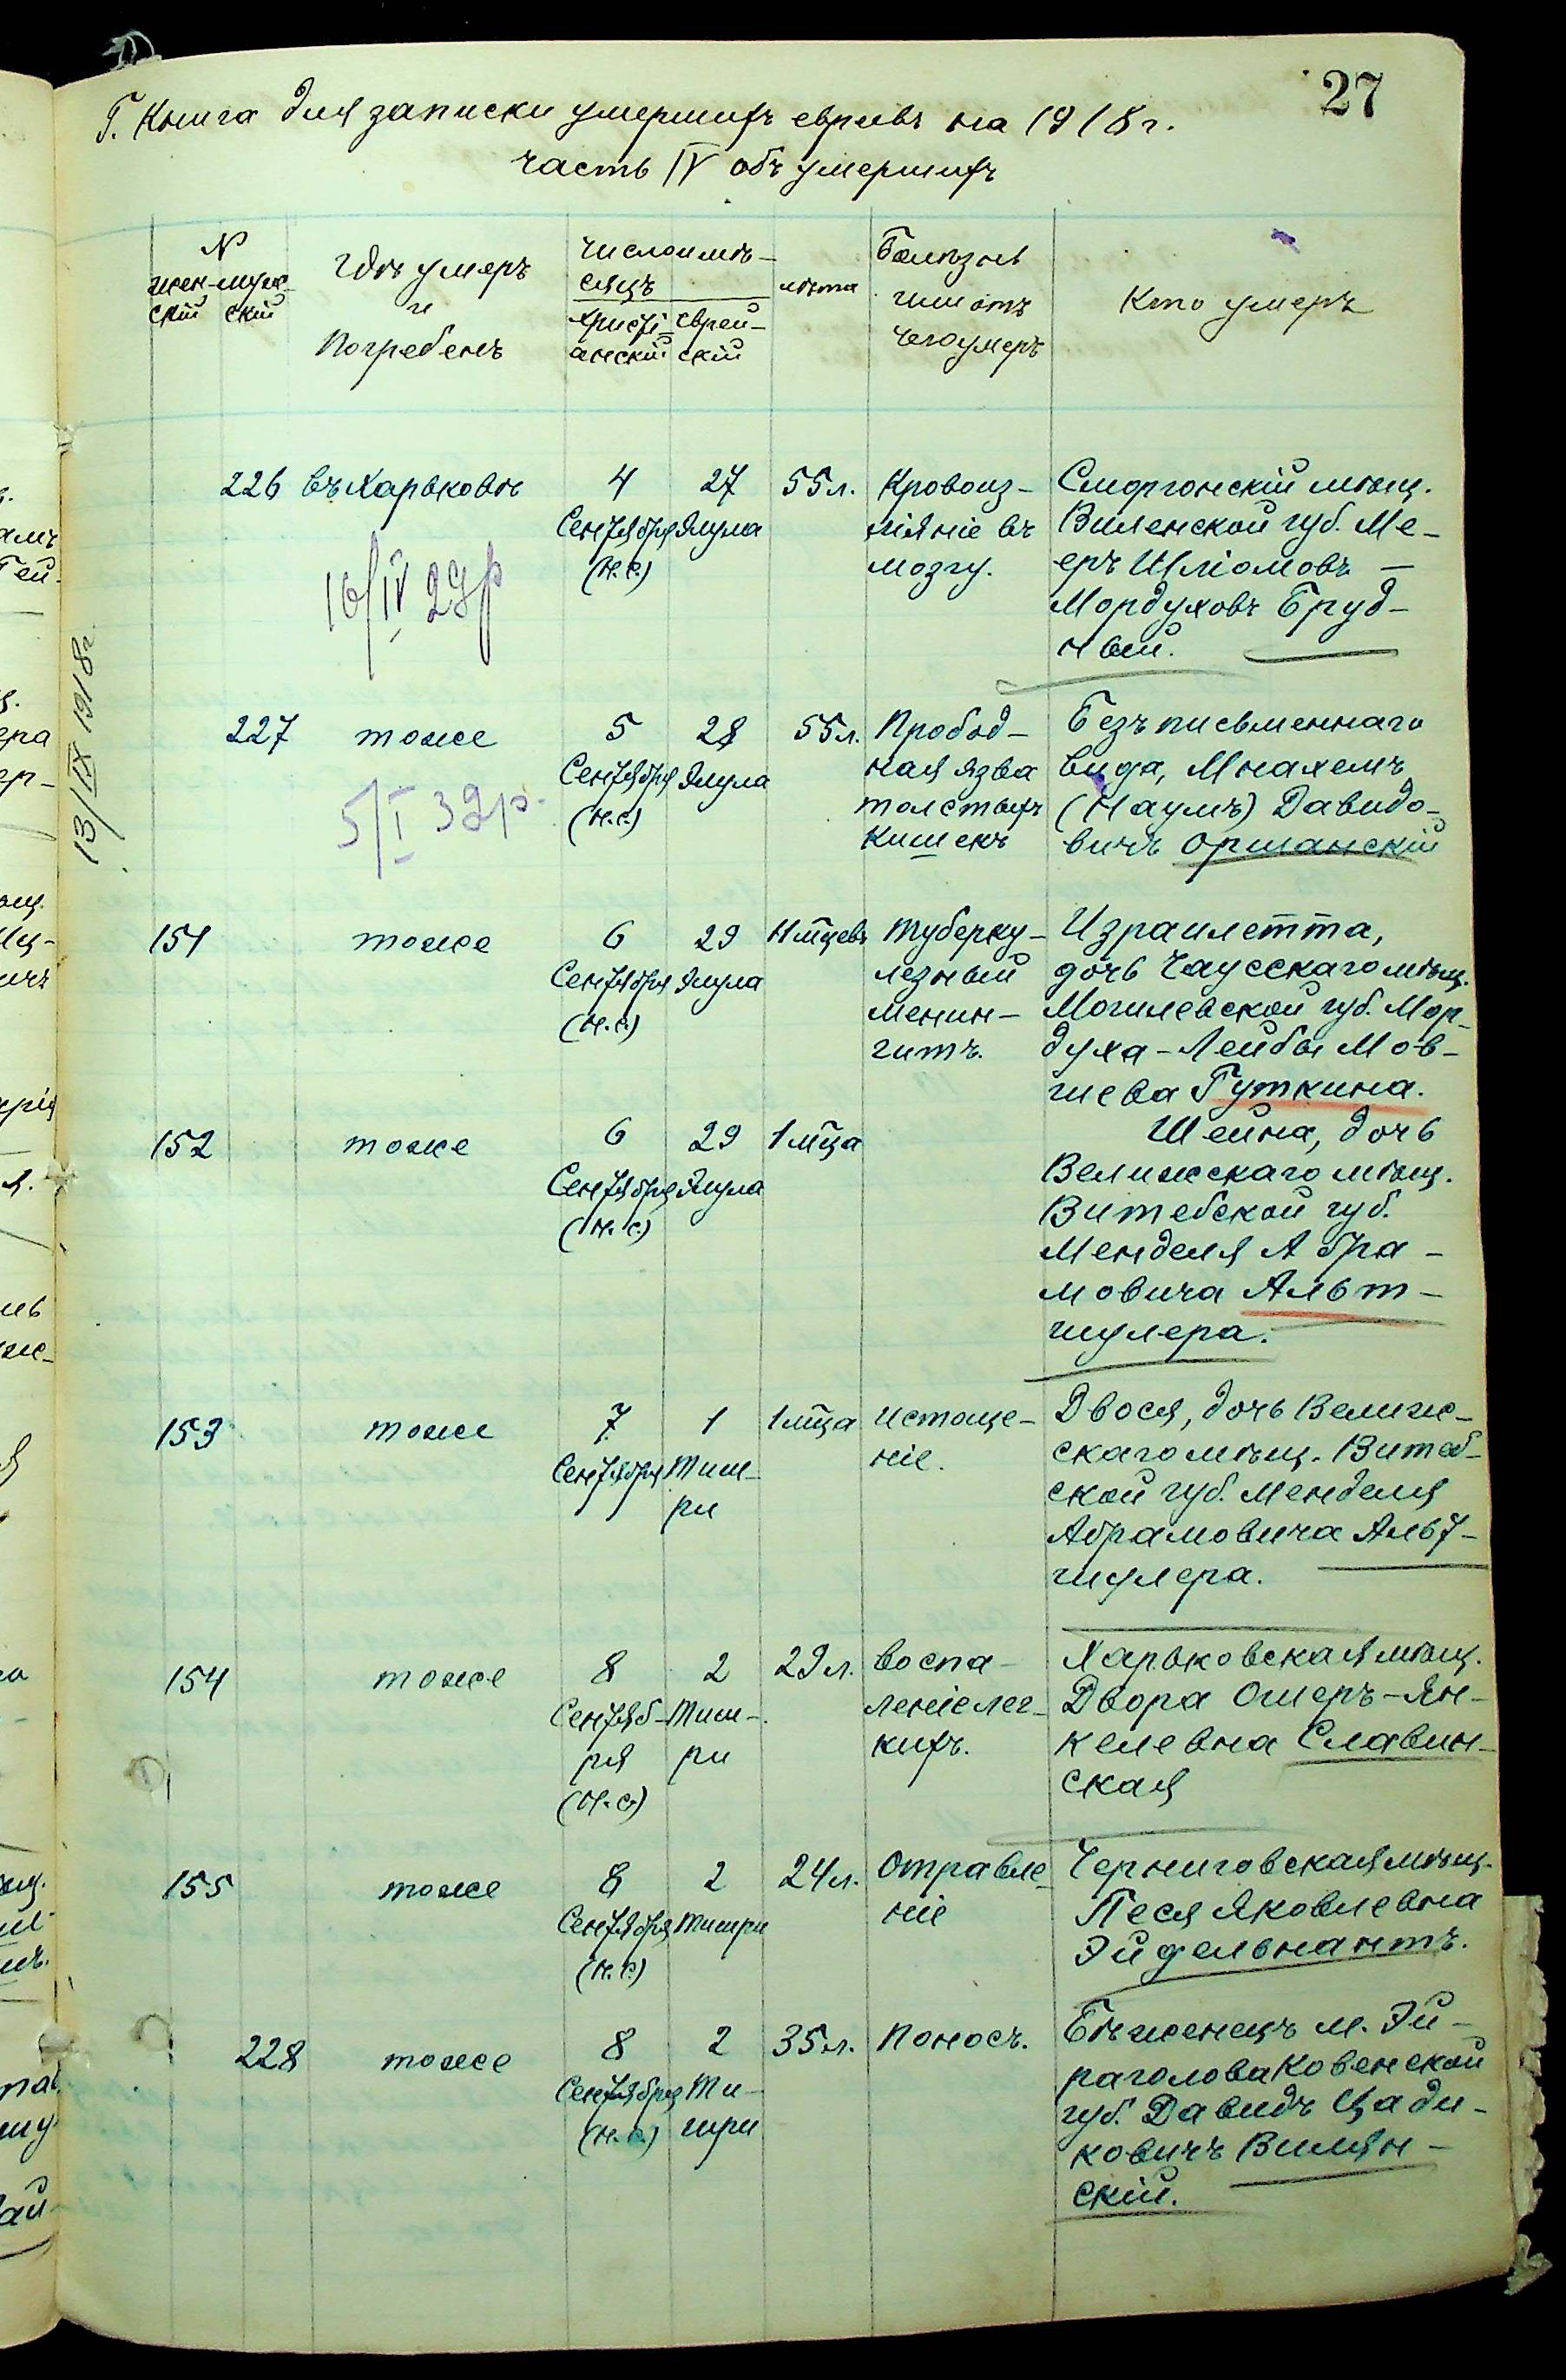 27
Г. Книга для записки умершихъ евреевъ на 1918 г.
часть IV объ умершихъ
№
жен-
ский
муж-
ский
Гдѣ умеръ
и
погребенъ
Число и мѣ-
сяцъ
христі-
анскій
еврей-
скій
лѣта
Болѣзнь
или отъ
чего умеръ
Кто умеръ
13/IX 1918 г.
226 въ Харьковѣ
16/IV 29 р
4
Сентября
(н.с.)
27
Элула
55 л.
Кровоиз-
ліяніе въ
мозгу.
Сморгонскій мѣщ.
Виленской губ. Ме-
еръ Шліомовъ —
Мордуховъ Бруд-
ный.
227 тоже
5/I 32 р.
5
Сентября
(н.с.)
28
Элула
55 л.
Пробод-
ная язва
толстыхъ
кишекъ
Безъ письменнаго
вида, Мнахемъ
(Наумъ) Давидо-
вичъ Оршанскій
151 тоже
6
Сентября
(н.с.)
29
Элула
11 мцевъ
Туберку-
лезный
менин-
гитъ.
Израилетта,
дочь Чаусскаго мѣщ.
Могилевской губ. Мор-
духа-Лейбы Мов-
шева Гуткина.
152 тоже
6
Сентября
(н.с.)
29
Элула
1 мца
Шейна, дочь
Велижскаго мѣщ.
Витебской губ.
Менделя Абра-
мовича Альт-
шулера.
153 тоже
7
Сентября
1
Тиш-
ри
1 мца
Истоще-
ніе.
Двося, дочь Велиж-
скаго мѣщ. Витеб-
ской губ. Менделя
Абрамовича Альт-
шулера.
154 тоже
8
Сентяб-
ря
(н.с.)
2
Тиш-
ри
29 л.
Воспа-
леніе лег-
кихъ.
Харьковская мѣщ.
Двора Ошеръ-Ян-
келевна Славин-
ская
155 тоже
8
Сентября
(н.с.)
2
Тишри
24 л.
Отравле-
ніе
Черниговская мѣщ.
Песя Яковлевна
Эйдельнантъ.
228 тоже
8
Сентября
(н.с.)
2
Ти-
шри
35 л.
Поносъ.
Бѣженецъ м. Эй-
раголова Ковенской
губ. Давидъ Цади-
ковичъ Вилян-
скій.